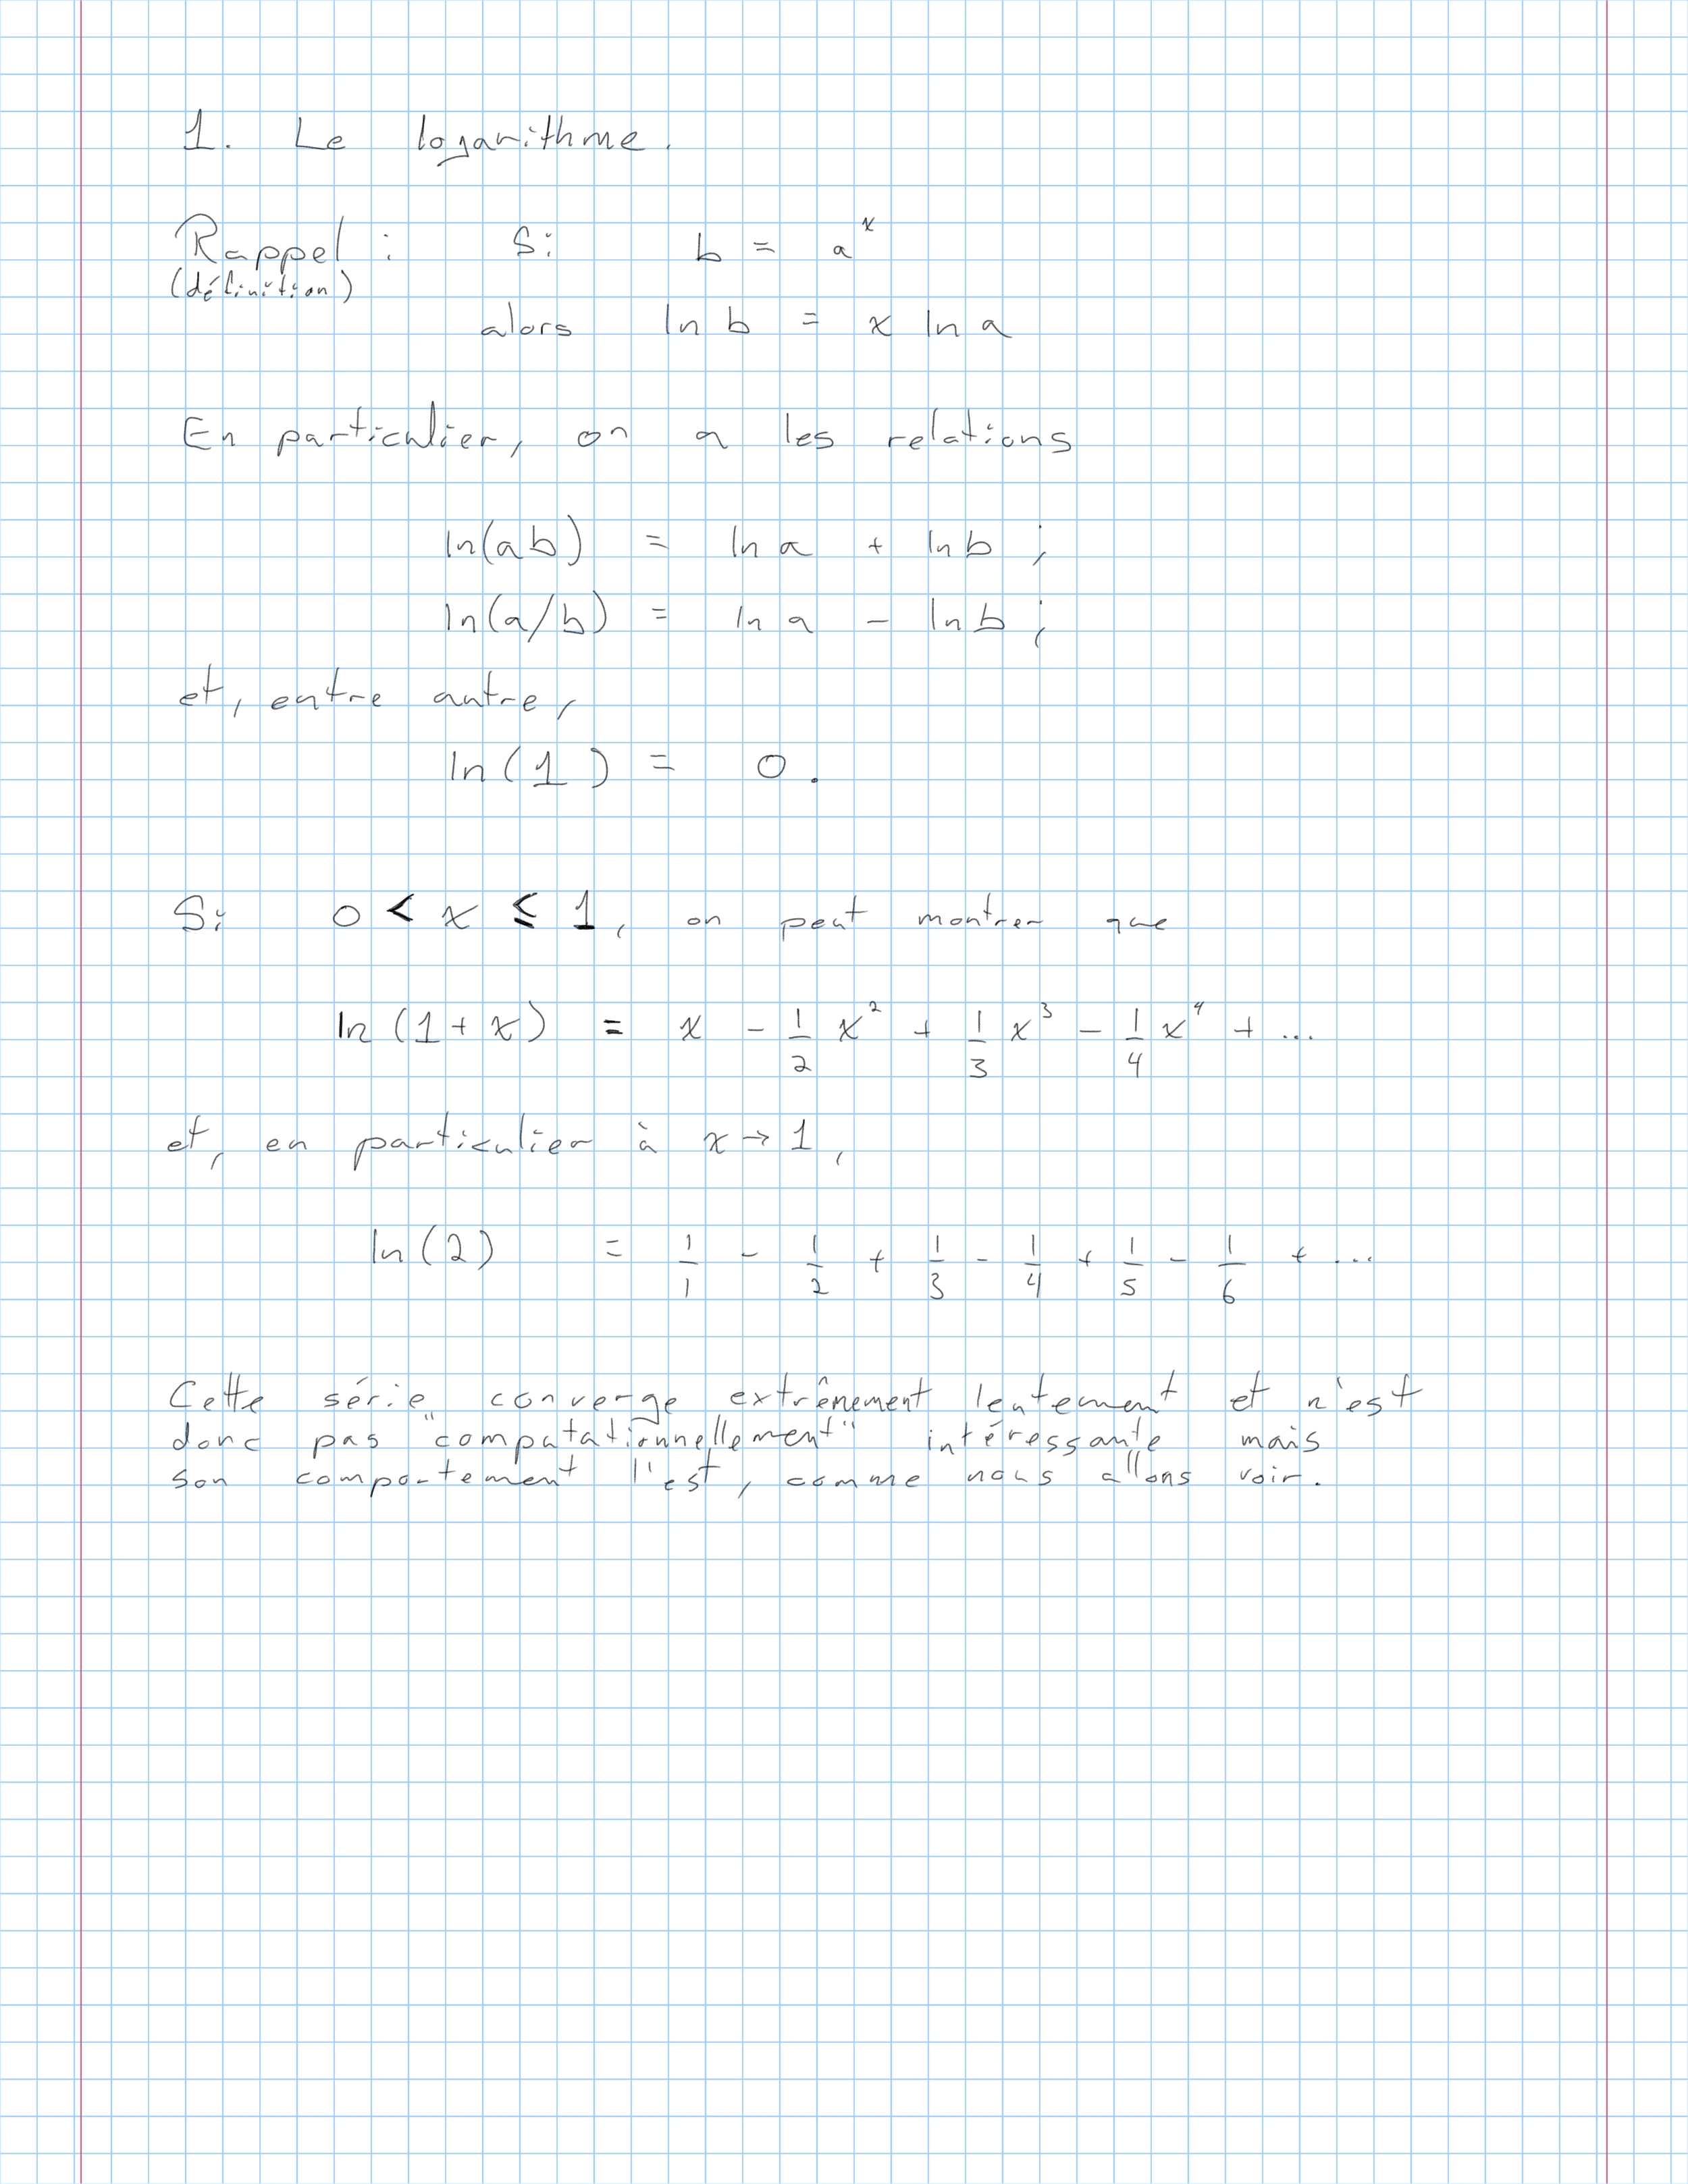 1. Le logarithme.
Rappel : Si b = a^x
(définition)
alors ln b = x ln a
En particulier, on a les relations
ln(ab) = ln a + ln b ;
ln(a/b) = ln a - ln b ;
et, entre autre,
ln(1) = 0.
Si 0 < x ≤ 1, on peut montrer que
ln(1+x) = x - 1/2 x^2 + 1/3 x^3 - 1/4 x^4 + ...
et, en particulier à x → 1,
ln(2) = 1/1 - 1/2 + 1/3 - 1/4 + 1/5 - 1/6 + ...
Cette série converge extrêmement lentement et n'est
donc pas "computationnellement" intéressante mais
son comportement l'est, comme nous allons voir.